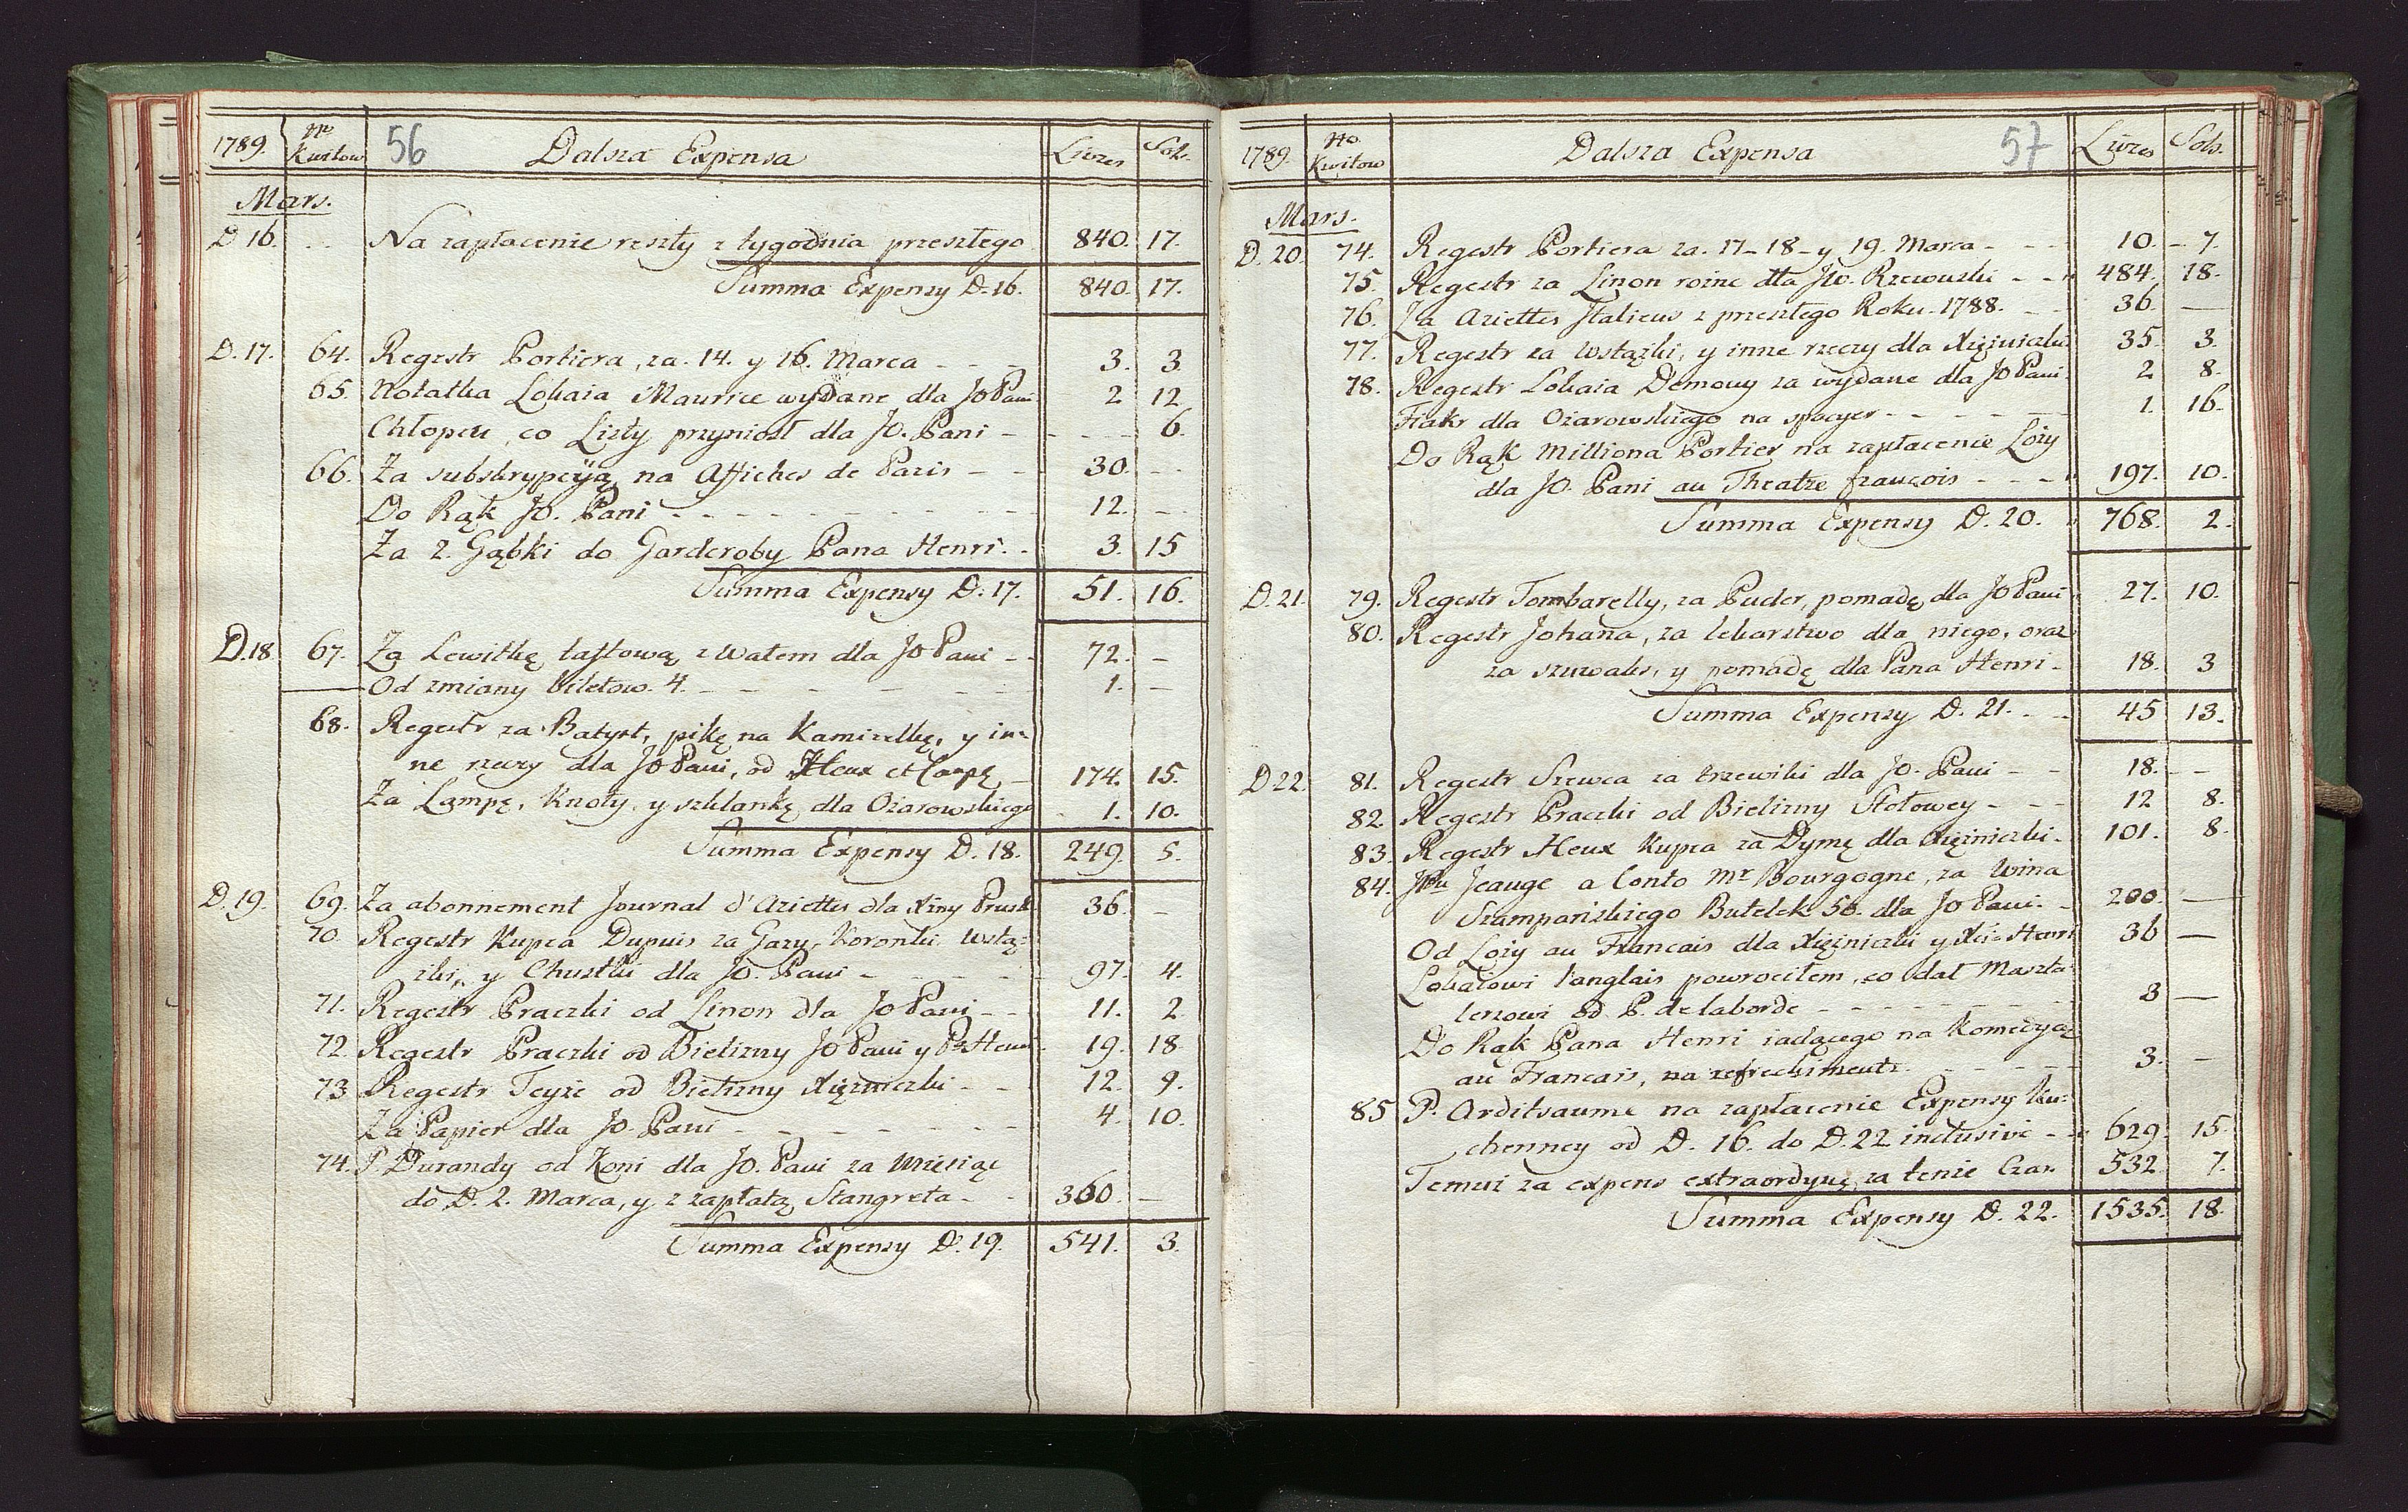 1789. Nro Kwitow 56 Dalsza Expensa Livres Sols.
Mars.
D 16. Na zapłacenie reszty z tygodnia przeszłego 840. 17.
Summa Expensy D. 16. 840. 17.
D. 17. 64. Regestr Portiera, za. 14. y 16. Marca - - - 3. 3
65. Notatka Lokaia Maurice wydane dla JO Pani 2 12
Chłopcu, co Listy przyniosł dla JO. Pani - - - - 6.
66. Za subskrypcyą na Affiches de Paris - - 30. - -
Do Rąk JO. Pani - - - - 12. - -
Za 2. Gąbki do Garderoby Pana Henri. - 3. 15
Summa Expensy D. 17. 51. 16.
D. 18. 67. Za Lewitkę taftową z Watem dla JO Pani - - 72. -
Od zmiany Biletow. 4. - - - - 1. -
68. Regestr za Batyst, pikę na Kamizelkę, y in=
ne rzeczy dla JO Pani, od Heux et Comp. - 174. 15.
Za Lampę, Knoty, y szklankę dla Ożarowskiego 1. 10.
Summa Expensy D. 18. 249. 5.
D. 19. 69. Za abonnement Journal d'Ariettes dla Xżny Prusk 36. -
70. Regestr Kupca Dupuis za Gazy, Koronki Wstąż=
żki, y Chustki dla JO. Pani - - - - 97. 4.
71. Regestr Praczki od Linon dla JO Pani - - 11. 2
72. Regestr Praczki od Bielizny JO Pani y Pa Henri 19. 18
73 Regestr Teyże od Bielizny Xiężniczki - - 12. 9.
Za Papier dla JO. Pani - - - - 4. 10.
74. P. Durandy od Koni dla JO. Pani za Miesiąc
do D. 2. Marca, y z zapłatą Stangreta - - 360. -
Summa Expensy D. 19. 541. 3.
1789. No. Kwitow Dalsza Expensa 57 Livres Sols.
Mars.
D. 20. 74. Regestr Portiera za. 17 - 18 - y 19. Marca - - - 10. - 7.
75. Regestr za Linon rożne dla JW. Rzewuski - - " 484. 18.
76. Za Ariettes Italicus z przeszłego Roku. 1788. - - 36. -
77. Regestr za Wstążki, y inne rzeczy dla Xiężniczki 35. 3.
78. Regestr Lokaia Domowy za wydane dla JO Pani. 2 8.
Fiakr dla Ożarowskiego na spacyer - - - - 1. 16.
Do Rąk Milliona Portier na zapłacenie Loży
dla JO. Pani au Theatre françois - - - " 197. 10.
Summa Expensy D. 20. " 768. 2.
D. 21. 79. Regestr Tombarelly, za Puder, pomadę dla JO Pani 27. 10.
80. Regestr Johana, za lekarstwo dla niego, oraz
za szuwaks, y pomadę dla Pana Henri - 18. 3
Summa Expensy D. 21. - - 45 13.
D 22. 81. Regestr Szewca za trzewiki dla JO. Pani - - 18. - -
82. Regestr Praczki od Bielizny Stołowey - - - 12 8.
83. Regestr Heux Kupca za Dymę dla Xiężniczki - 101. 8.
84. JPu Jeauge a Conto Mr Bourgogne, za Wina
Szampańskiego Butelek 50. dla JO Pani. - 200. -
Od Loży au Francais dla Xiężniczki y Xcia Henri 36 -
Lokaiowi l'anglais powrociłem, co dał Maszta=
lerzowi od P. de laborde - - - - 3 -
Do Rąk Pana Henri iadącego na Komedyą
au Francais, na refrechiments. - - - - 3. -
85 P. Arditsaume na zapłacenie Expensy Ku=
chenney od D. 16. do D. 22 inclusive - - " 629. 15.
Temuż za expens extraordynę za tenże Czas. 532. 7.
Summa Expensy D. 22. 1535. 18.